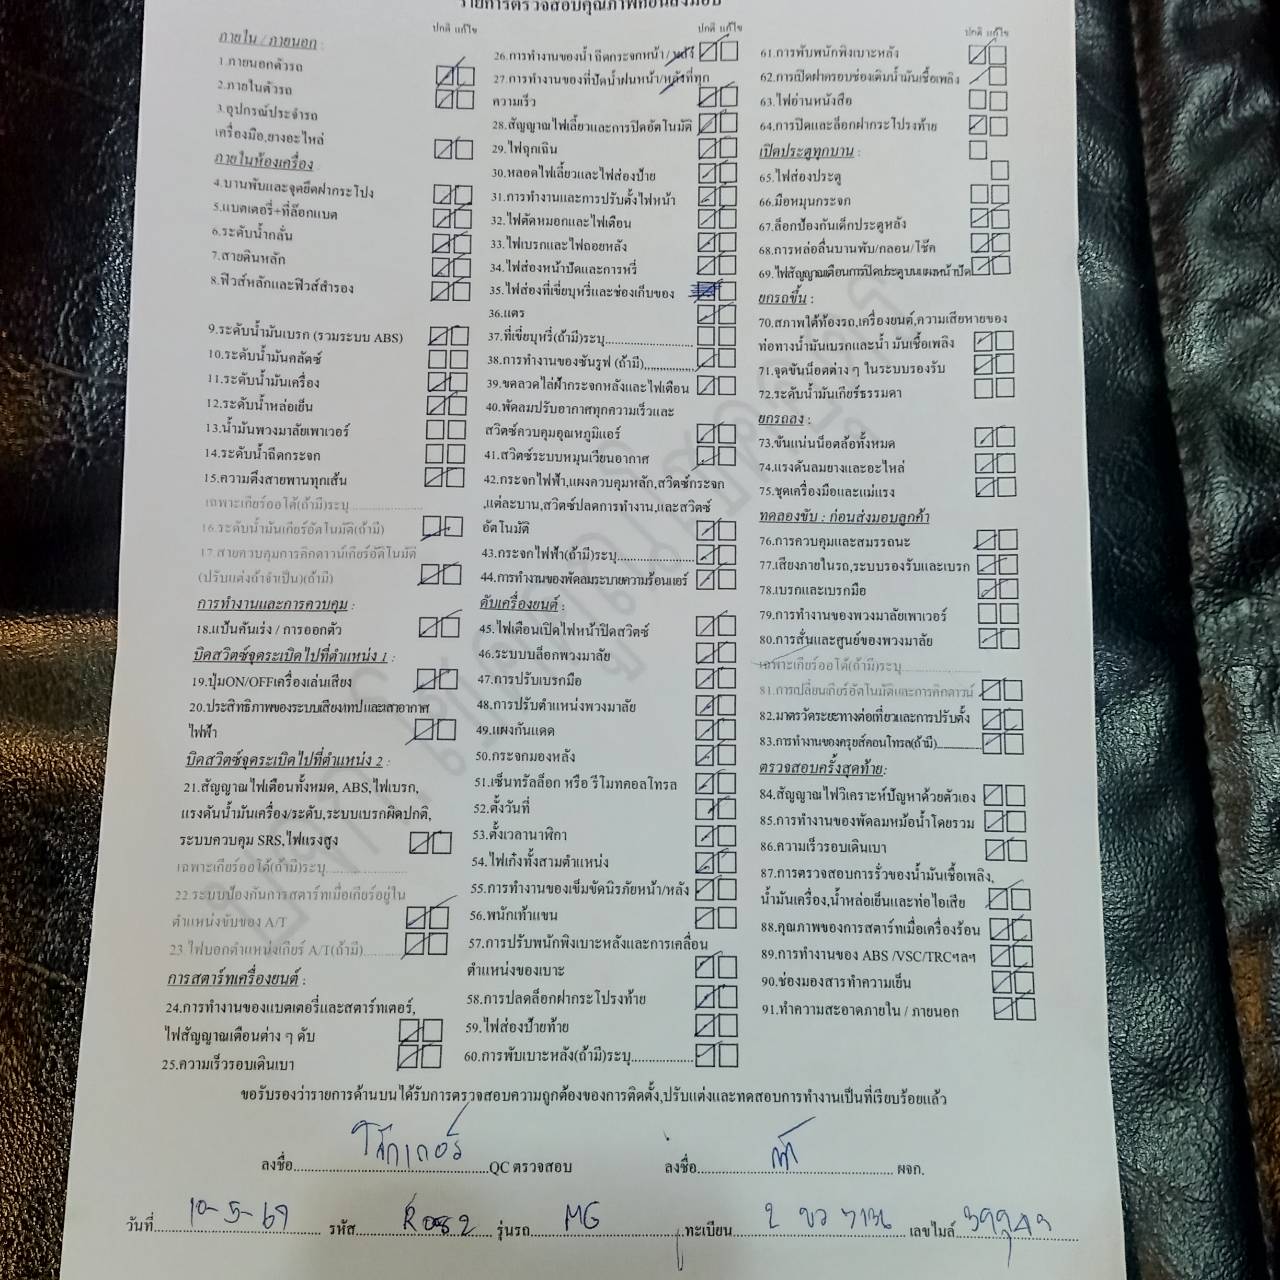 รายการตรวจสอบคุณภาพก่อนส่งมอบ
ปกติ แก้ไข
ภายใน / ภายนอก :
1.ภายนอกตัวรถ
2.ภายในตัวรถ
3.อุปกรณ์ประจำรถ
เครื่องมือ,ยางอะไหล่
ภายในห้องเครื่อง
4.บานพับและจุดยึดฝากระโปง
5.แบตเตอรี่+ที่ล็อกแบต
6.ระดับน้ำกลั่น
7.สายดินหลัก
8.ฟิวส์หลักและฟิวส์สำรอง
9.ระดับน้ำมันเบรก (รวมระบบ ABS)
10.ระดับน้ำมันคลัตซ์
11.ระดับน้ำมันเครื่อง
12.ระดับน้ำหล่อเย็น
13.น้ำมันพวงมาลัยเพาเวอร์
14.ระดับน้ำฉีดกระจก
15.ความตึงสายพานทุกเส้น
เฉพาะเกียร์ออโต้(ถ้ามี)ระบุ
16.ระดับน้ำมันเกียร์อัตโนมัติ(ถ้ามี)
17.สายควบคุมการคิกดาวน์เกียร์อัติโนมัติ
(ปรับแต่งถ้าจำเป็น)(ถ้ามี)
การทำงานและการควบคุม :
18.แป้นคันเร่ง / การออกตัว
บิดสวิตซ์จุดระเบิดไปที่ตำแหน่ง 1 :
19.ปุ่มON/OFFเครื่องเล่นเสียง
20.ประสิทธิภาพของระบบเสียงเทปและเสาอากาศ
ไฟฟ้า
บิดสวิตซ์จุดระเบิดไปที่ตำแหน่ง 2 :
21.สัญญาณไฟเตือนทั้งหมด, ABS,ไฟเบรก,
แรงดันน้ำมันเครื่อง/ระดับ,ระบบเบรกผิดปกติ,
ระบบควบคุม SRS,ไฟแรงสูง
เฉพาะเกียร์ออโต้(ถ้ามี)ระบุ
22.ระบบป้องกันการสตาร์ทเมื่อเกียร์อยู่ใน
ตำแหน่งขับของ A/T
23.ไฟบอกตำแหน่งเกียร์ A/T(ถ้ามี)
การสตาร์ทเครื่องยนต์ :
24.การทำงานของแบตเตอรี่และสตาร์ทเตอร์,
ไฟสัญญาณเตือนต่าง ๆ ดับ
25.ความเร็วรอบเดินเบา
ปกติ แก้ไข
26.การทำงานของน้ำ ฉีดกระจกหน้า / หลัง
27.การทำงานของที่ปัดน้ำฝนหน้า/หลังที่ทุก
ความเร็ว
28.สัญญาณไฟเลี้ยวและการปิดอัตโนมัติ
29.ไฟฉุกเฉิน
30.หลอดไฟเลี้ยวและไฟส่องป้าย
31.การทำงานและการปรับตั้งไฟหน้า
32.ไฟตัดหมอกและไฟเตือน
33.ไฟเบรกและไฟถอยหลัง
34.ไฟส่องหน้าปัดและการหรี่
35.ไฟส่องที่เขี่ยบุหรี่และช่องเก็บของ
36.แตร
37.ที่เขี่ยบุหรี่(ถ้ามี)ระบุ
38.การทำงานของซันรูฟ (ถ้ามี)
39.ขดลวดไล่ฝ้ากระจกหลังและไฟเตือน
40.พัดลมปรับอากาศทุกความเร็วและ
สวิตซ์ควบคุมอุณหภูมิแอร์
41.สวิตซ์ระบบหมุนเวียนอากาศ
42.กระจกไฟฟ้า,แผงควบคุมหลัก,สวิตซ์กระจก
,แต่ละบาน,สวิตซ์ปลดการทำงาน,และสวิตซ์
อัตโนมัติ
43.กระจกไฟฟ้า(ถ้ามี)ระบุ
44.การทำงานของพัดลมระบายความร้อนแอร์
ดับเครื่องยนต์ :
45.ไฟเตือนเปิดไฟหน้าปิดสวิตซ์
46.ระบบบล็อกพวงมาลัย
47.การปรับเบรกมือ
48.การปรับตำแหน่งพวงมาลัย
49.แผงกันแดด
50.กระจกมองหลัง
51.เซ็นทรัลล็อก หรือ รีโมทคอลโทรล
52.ตั้งวันที่
53.ตั้งเวลานาฬิกา
54.ไฟเก๋งทั้งสามตำแหน่ง
55.การทำงานของเข็มขัดนิรภัยหน้า/หลัง
56.พนักเท้าแขน
57.การปรับพนักพิงเบาะหลังและการเคลื่อน
ตำแหน่งของเบาะ
58.การปลดล็อกฝากระโปรงท้าย
59.ไฟส่องป้ายท้าย
60.การพับเบาะหลัง(ถ้ามี)ระบุ
ปกติ แก้ไข
61.การพับพนักพิงเบาะหลัง
62.การเปิดฝาครอบช่องเติมน้ำมันเชื้อเพลิง
63.ไฟอ่านหนังสือ
64.การปิดและล็อกฝากระโปรงท้าย
เปิดประตูทุกบาน :
65.ไฟส่องประตู
66.มือหมุนกระจก
67.ล็อกป้องกันเด็กประตูหลัง
68.การหล่อลื่นบานพับ/กลอน/โช๊ค
69.ไฟสัญญาณเตือนการปิดประตูบนแผงหน้าปัด
ยกรถขึ้น :
70.สภาพใต้ท้องรถ,เครื่องยนต์,ความเสียหายของ
ท่อทางน้ำมันเบรกและน้ำ มันเชื้อเพลิง
71.จุดขันน็อตต่าง ๆ ในระบบรองรับ
72.ระดับน้ำมันเกียร์ธรรมดา
ยกรถลง :
73.ขันแน่นน็อตล้อทั้งหมด
74.แรงดันลมยางและอะไหล่
75.ชุดเครื่องมือและแม่แรง
ทดลองขับ : ก่อนส่งมอบลูกค้า
76.การควบคุมและสมรรถนะ
77.เสียงภายในรถ,ระบบรองรับและเบรก
78.เบรกและเบรกมือ
79.การทำงานของพวงมาลัยเพาเวอร์
80.การสั่นและศูนย์ของพวงมาลัย
เฉพาะเกียร์ออโต้(ถ้ามี)ระบุ
81.การเปลี่ยนเกียร์อัตโนมัติและการคิกดาวน์
82.มาตรวัดระยะทางต่อเที่ยวและการปรับตั้ง
83.การทำงานของครุยส์คอนโทรล(ถ้ามี)
ตรวจสอบครั้งสุดท้าย:
84.สัญญาณไฟวิเคราะห์ปัญหาด้วยตัวเอง
85.การทำงานของพัดลมหม้อน้ำโดยรวม
86.ความเร็วรอบเดินเบา
87.การตรวจสอบการรั่วของน้ำมันเชื้อเพลิง,
น้ำมันเครื่อง,น้ำหล่อเย็นและท่อไอเสีย
88.คุณภาพของการสตาร์ทเมื่อเครื่องร้อน
89.การทำงานของ ABS /VSC/TRCฯลฯ
90.ช่องมองสารทำความเย็น
91.ทำความสะอาดภายใน / ภายนอก
ขอรับรองว่ารายการด้านบนได้รับการตรวจสอบความถูกต้องของการติดตั้ง,ปรับแต่งและทดสอบการทำงานเป็นที่เรียบร้อยแล้ว
ลงชื่อ QC ตรวจสอบ ลงชื่อ ผจก.
วันที่ 10-5-69 รหัส R0852 รุ่นรถ MG ทะเบียน 2 ขว 7136 เลขไมล์